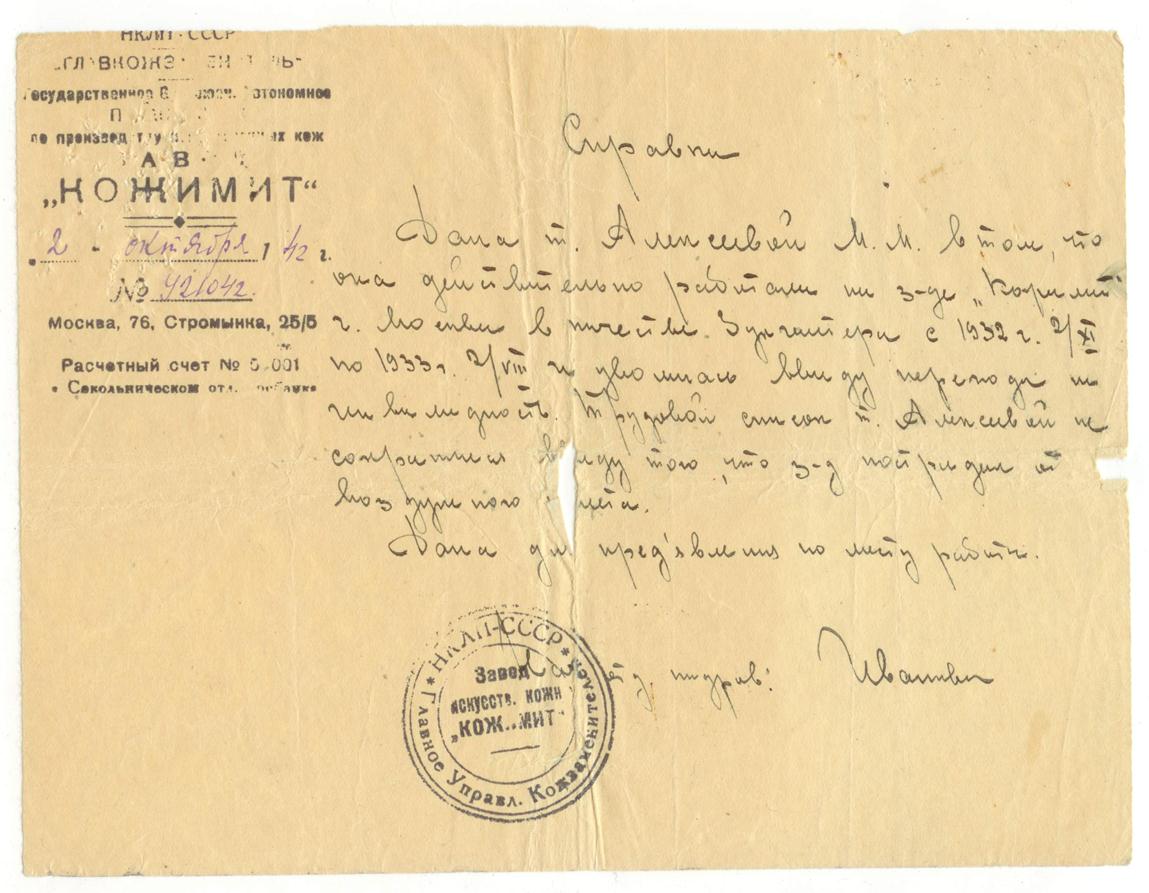 НКЛП-СССР
Государственное автономное
по кож
"КОЖИМИТ"
"2 - октября 1 42 г.
№ 421042.
Москва, 76, Стромынка, 25/5
Расчетный счет №
в Сокольническом отд.
Справка
Дана т. Алексеевой М. М. в том, что
она действительно работала на з-де „Кожимит"
г. Москвы в качестве бухгалтера с 1932 г. 2/XI
по 1933 г. 2/VIII и уволилась ввиду перехода на
инвалидность. Трудовой список т. Алексеевой не
сохранился ввиду того, что з-д пострадал от
воздушного налета.
Дана для пред'явления по месту работы.
Иванова
*НКЛП-СССР*
Главное Управл. Кожзаменителей
Завод
искусств. кожи
„КОЖИМИТ"